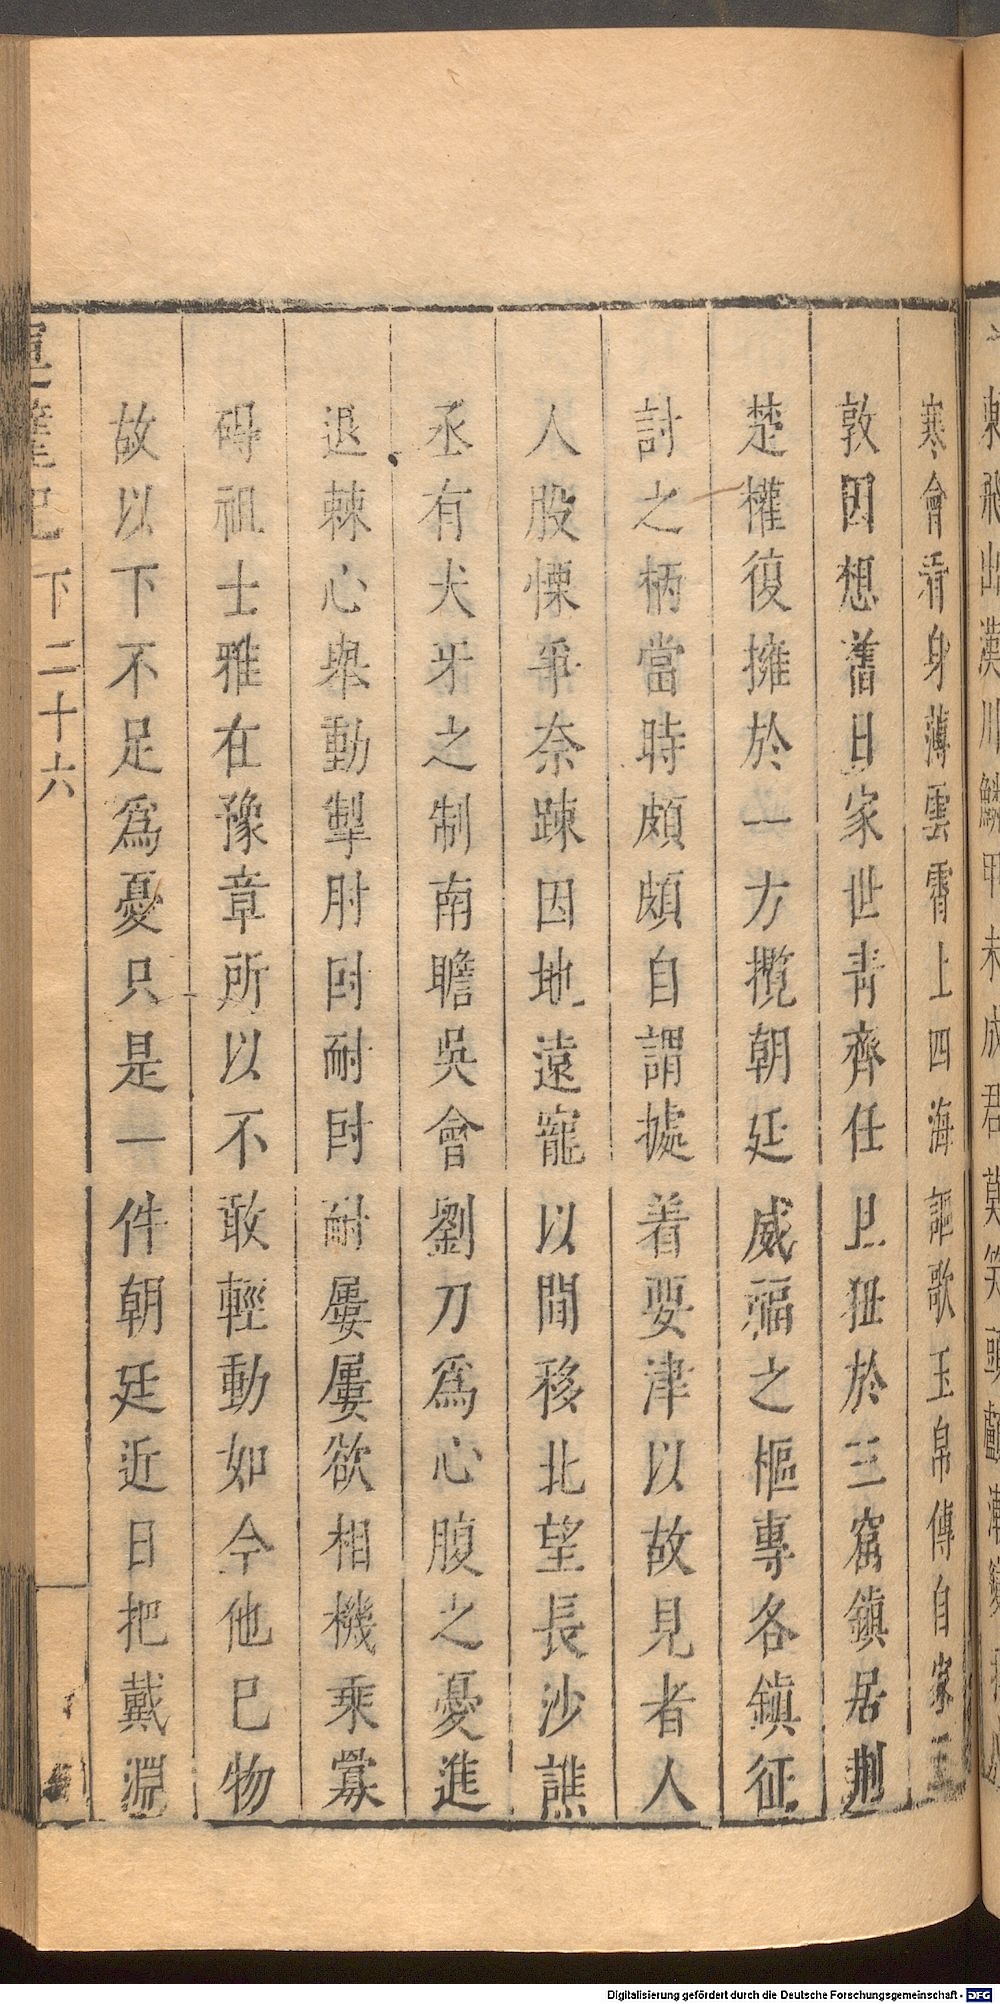 寒會看身薄雲霄上四海謳歌玉帛傳自家王
敦因想舊日家世青齊任上狃於三窟鎮居荆
楚權復擁於一方攬朝廷威福之樞專各鎮征
討之柄當時頗頗自謂據着要津以故見者人
人股慄爭奈踈因地遠寵以間移北望長沙譙
丞有犬牙之制南瞻吳會劉刀為心腹之憂進
退棘心舉動掣肘尀耐尀耐屢屢欲相機乘釁
碍祖士雅在豫章所以不敢輕動如今他已物
故以下不足爲憂只是一件朝廷近日把戴淵
下二十六
Digitalisierung gefördert durch die Deutsche Forschungsgemeinschaft - DFG